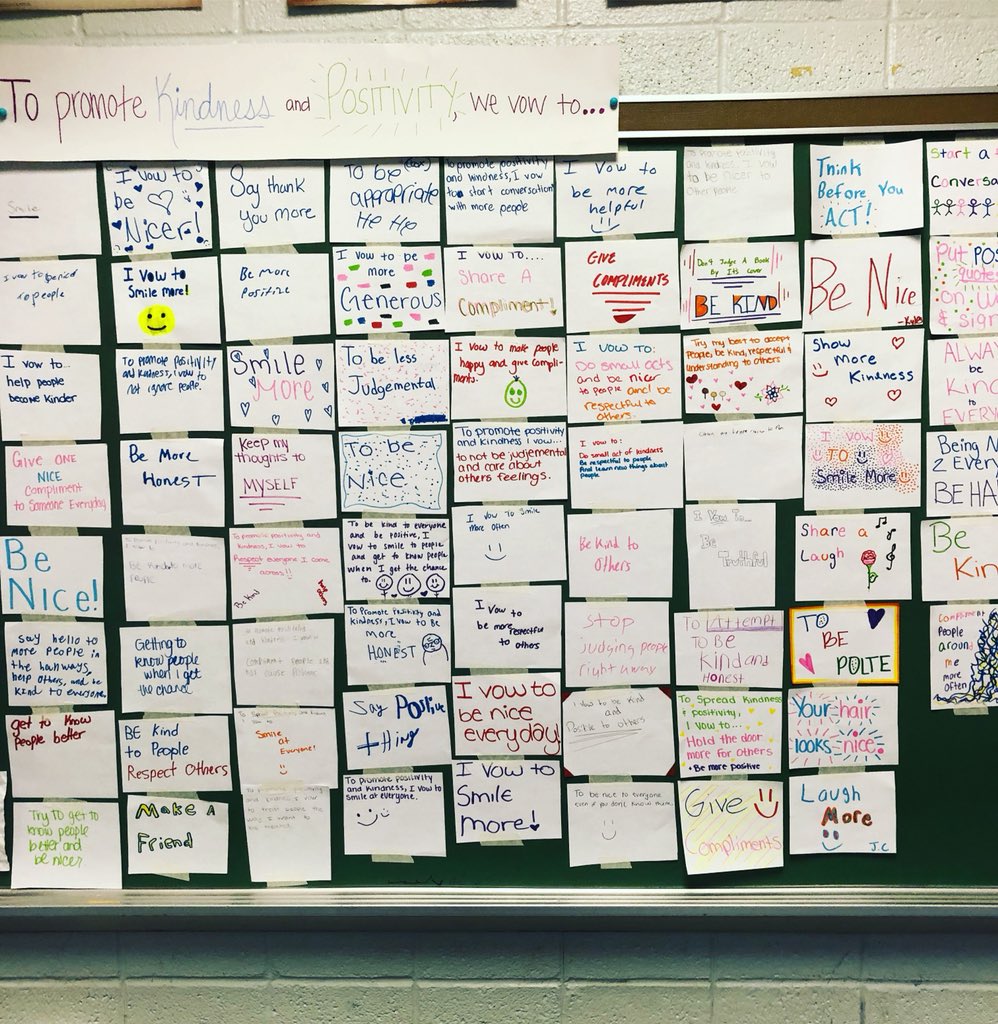 To promote Kindness and POSITIVITY, we vow to...
Smile
I vow to
be
Nicer!
Say thank
you more
To be
appropriate
He He
To promote positivity
and kindness, I vow
to start conversation
with more people
I vow to
be more
helpful
To promote positivity
and kindness, I vow
to be nicer to
other people
Think
Before You
ACT!
Start a
Conversa
I vow to be nice
to people
I vow to
Smile more!
Be more
Positive
I vow to be
more
Generous
I vow to....
Share A
Compliment!
GIVE
COMPLIMENTS
Don't Judge A Book
By Its Cover
BE KIND
Be Nice
-Kyle
Put POS
quote
on w
& sign
I vow to...
help people
become kinder
To promote positivity
and kindness, I vow to
not ignore people.
Smile
More
To be less
Judgemental
I vow to make people
happy and give compli-
ments.
I vow to:
Do small acts
and be nicer
to people and be
respectful to
others.
Try my best to accept
People, be kind, respectful &
understanding to others
Show
more
Kindness
ALWAY
be
Kind
to
EVERY
Give one
NICE
compliment
to Someone Everyday
Be More
HonesT
Keep my
thoughts to
MYSELF
To be
Nice
To promote positivity
and kindness I vow...
to not be judjemental
and care about
others feelings.
I vow to:
Do small act of kindness
Be respectful to people
And learn new things about
people
I vow
TO
Smile More
Being N
2 Every
BEHA
Be
Nice!
To promote positivity and kindness,
I vow to
be kind to more
people
To promote positivity and
kindness, I vow to
Respect everyone I come
across!!
Be Kind
To be kind to everyone
and be positive, I
vow to smile to people
and get to know people
when I get the chance
to.
I vow To Smile
More often
Be Kind to
Others
I Vow To...
Be
Truthful
Share a
Laugh
Be
Kin
say hello to
more people in
the hallways,
help others, and be
kind to everyone.
Getting to
know people
when I get
the chance
To promote positivity
and kindness I vow to
compliment people
To Promote Positivity and
kindness, I vow to Be
More
HONEST
I vow to
be more respectful
to others
Stop
judging people
right away
To Attempt
To Be
Kind and
Honest
TO
BE
POLTE
Compliment
People
around
me
more
often
get to know
people better
BE Kind
to People
Respect Others
Smile
at
Everyone!
Say Positive
thing
I vow to
be nice
everyday!
I vow to be kind
and
Positive to others
To Spread Kindness
& positivity,
I vow to...
Hold the door
more for others
• Be more positive
Your hair
looks nice.
Try to get to
know people
better and
be nicer
Make A
Friend
To promote positivity
and kindness, I vow to
smile at everyone.
I vow to
Smile
more!
To be nice to everyone
even if you don't know them.
Give
Compliments
Laugh
More
J.C